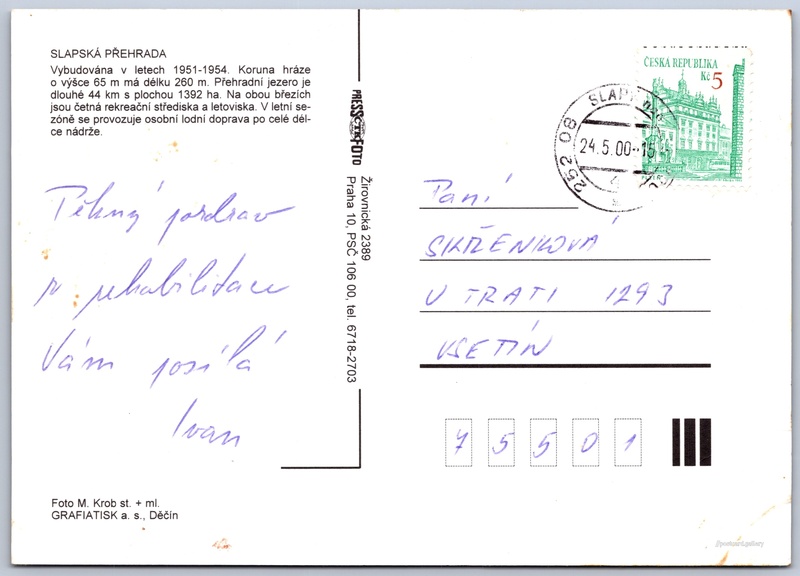 SLAPSKÁ PŘEHRADA
Vybudována v letech 1951-1954. Koruna hráze
o výšce 65 m má délku 260 m. Přehradní jezero je
dlouhé 44 km s plochou 1392 ha. Na obou březích
jsou četná rekreační střediska a letoviska. V letní se-
zóně se provozuje osobní lodní doprava po celé dél-
ce nádrže.
Pěkný pozdrav
z rehabilitace
Vám posílá
Ivan
Foto M. Krob st. + ml.
GRAFIATISK a. s., Děčín
PRESSFOTO
Žirovnická 2389
Praha 10, PSČ 106 00, tel. 6718-2703
ČESKÁ REPUBLIKA
Kč 5
252 08
24.5.00-15
Paní
SKŘENKOVÁ
U TRATI 1293
VSETÍN
75501